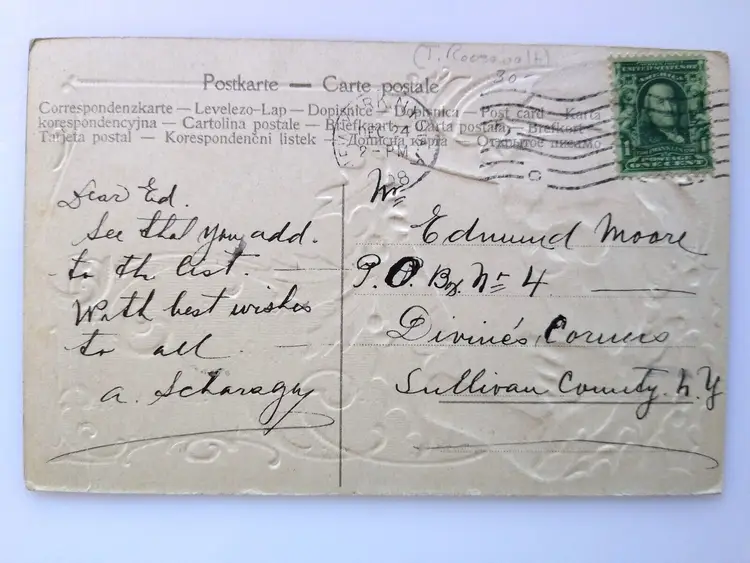 (T. Roosevelt)
30
Postkarte — Carte postale
Correspondenzkarte — Levelezo-Lap — Dopisnice — Dopisnica — Post card — Karta
korespondencyjna — Cartolina postale — Briefkaart — Carta postala — Brefkort —
Tarjeta postal — Korespondenčni listek — Дописна карта — Открытое письмо
24
2-PM
08
UNITED STATES OF AMERICA
1 FRANKLIN 1
POSTAGE
ONE CENT
Dear Ed.
See that you add.
to the list. —
With best wishes
to all. —
A.
Mr
Edmund Moore
P.O. Bx. Nr 4. —
Divine's Corners
Sullivan County. N.Y